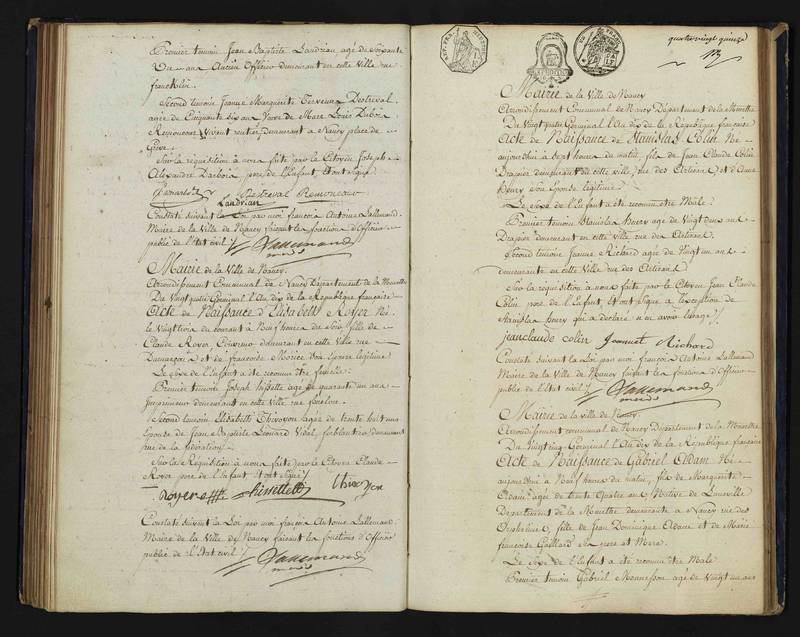 Premier temoin Jean Baptiste Landrian agé de Soixante
Un ans Ancien Officier demeurant en cette Ville rue
franklin.
Second temoin Jeanne Marguerite
agée de Cinquante six ans Veuve de Marc Louis Dubois
Remoncour Vivant rentier demeurant a Nancy place de
Greve
Sur la requisition à nous faite par le Citoyen Joseph
Alexandre pere de l'Enfant Et ont Signé
Destreval Remoncour
Landrian
Constaté Suivant la Loi par moi françois Antoine Lallemand.
Maire de la Ville de Nancy faisant les fonctions d'Officier
public de l'Etat civil ./.
Lallemand
maire
Mairie de la Ville de Nancy.
Arrondissement Communal de Nancy Departement de la Meurthe
Du Vingt quatre Germinal l'An dix de la Republique française
Acte de Naissance d'Elisabeth Royer Né
le Vingt trois du courant à Neuf heures du Soir fille de
Claude Royer demeurant en cette Ville rue
et de francoise Son Epouse legitime
Le Sexe de l'Enfant a été reconnu être femelle.
Premier temoin Joseph agé de quarante un ans
Imprimeur demeurant en cette Ville rue
Second temoin Elisabeth Thiroyon agée de trente huit ans
Epouse de Jean Baptiste Leonard Vidal ferblantier demeurant
rue de la federation
Sur la Réquisition à nous faite par le Citoyen Claude
Royer pere de l'Enfant Et ont Signé
Royer
Constaté Suivant la Loi par moi françois Antoine Lallemand.
Maire de la Ville de Nancy faisant les fonctions d'Officier
public de l'Etat civil ./.
Lallemand
maire
quatre vingt quinze
Mairie de la Ville de Nancy
Arrondissement Communal de Nancy Departement de la Meurthe
Du Vingt quatre Germinal l'An dix de la République française
Acte de Naissance de Stanislas Colin Né
aujourd'hui à Sept heures du matin, fils de Jean Claude Colin
Drapier demeurant en cette ville, rue des Artisans Et d'Anne
henry Son Epouse legitime
Le Sexe de l'Enfant a été reconnu être Male.
Premier temoin Stanislas henry agé de Vingt deux ans
Drapier demeurant en cette Ville rue des Artisans.
Second temoin Jeanne Richard agée de Vingt un ans
demeurante en cette Ville rue des Artisans
Sur la requisition a nous faite par le Citoyen Jean Claude
Colin pere de l'Enfant Et ont Signé à l'exception de
Stanislas henry qui a declaré n'en avoir l'usage ./.
jean claude colin Jeanne Richard
Constaté Suivant la Loi par moi françois Antoine Lallemand
Maire de la Ville de Nancy faisant les fonctions d'Officier
public de l'Etat civil ./.
Lallemand
maire
Mairie de la ville de Nancy.
Arrondissement communal de Nancy Departement de la Meurthe
Du Vingt cinq Germinal l'An dix de la République française
Acte de Naissance de Gabriel Adam Né
aujourd'hui à Neuf heures du matin, fils de Marguerite
Adam agée de trente quatre ans Native de Luneville
Departement de la Meurthe demeurante a Nancy rue des
Orphelines, fille de Jean Dominique Adam et de Marie
françoise Gaillard Ses pere et Mere.
Le Sexe de l'Enfant a été reconnu être Male
Premier temoin Gabriel Monnesson agé de Vingt un ans